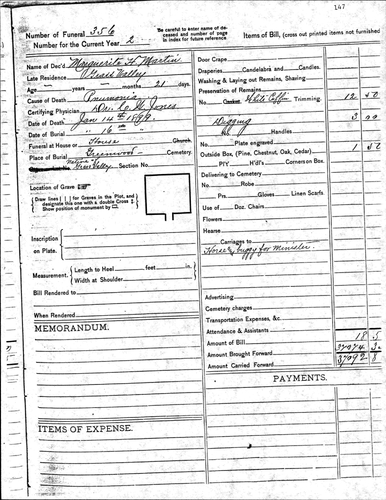 147
Number of Funeral 356
Number for the Current Year 2
Be careful to enter name of deceased and number of page in index for future reference.
Items of Bill, (cross out printed items not furnished
Name of Dec'd Marguerite H. Martin
Late Residence Grass Valley
Age years months 21 days
Cause of Death Pneumonia
Certifying Physician Dr. C. W. Jones
Date of Death Jan 14th 1899
Date of Burial " 16th "
Funeral at House or House Church.
Place of Burial Greenwood Cemetery.
Grass Valley Section No.
Location of Grave
Draw lines | | | for Graves in the Plot, and designate this one with a double Cross
Show position of monument by
Inscription on Plate.
Measurement. Length to Heel feet in.
Width at Shoulder
Bill Rendered to
When Rendered
MEMORANDUM.
ITEMS OF EXPENSE.
Door Crape
Draperies Candelabra and Candles.
Washing & Laying out Remains, Shaving
Preservation of Remains
No. Casket White Coffin Trimming. 12 50
Digging 3 00
Handles
No. Plate engraved 1 50
Outside Box, (Pine, Chestnut, Oak, Cedar)
No. PTY H'd's Comerson Box
Delivering to Cemetery
No. Robe
No. Prs. Gloves Linen Scarfs
Use of Doz. Chairs
Flowers
Hearse
Carriages to
Horse & buggy for Minister
Advertising
Cemetery charges
Transportation Expenses, &c
Attendance & Assistants
Amount of Bill 18 5
Amount Brought Forward 37074
Amount Carried Forward 37092 8
PAYMENTS.